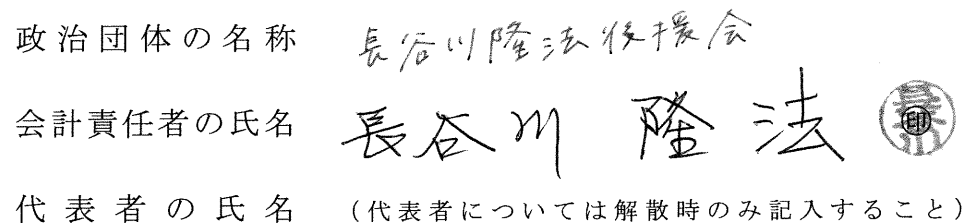 政治団体の名称 長谷川隆法後援会
会計責任者の氏名 長谷川 隆法 印
代表者の氏名 (代表者については解散時のみ記入すること)